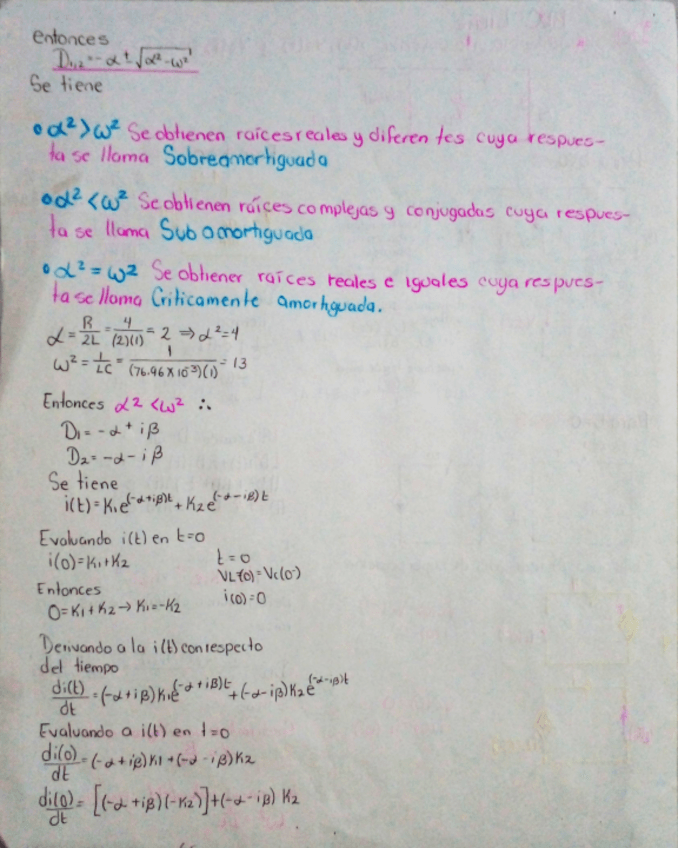 entonces
D₁,₂ = -α ± √α²-ω²
Se tiene
• α² > ω² Se obtienen raíces reales y diferentes cuya respues-
ta se llama Sobreamortiguada
• α² < ω² Se obtienen raíces complejas y conjugadas cuya respues-
ta se llama Sub amortiguada
• α² = ω² Se obtiener raíces reales e iguales cuya respues-
ta se llama Criticamente amortiguada.
α = R/2L = 4/(2)(1) = 2 ⇒ α² = 4
ω² = 1/LC = 1/(76.96 X 10⁻³)(1) = 13
Entonces α2 < ω² ∴
D₁ = -α + iβ
D₂ = -α - iβ
Se tiene
i(t) = K₁e^(-α+iβ)t + K₂e^(-α-iβ)t
Evaluando i(t) en t=0
i(0) = K₁+K₂
t=0
VL(0) = Vc(0⁻)
i(0) = 0
Entonces
0 = K₁+K₂ → K₁ = -K₂
Derivando a la i(t) con respecto
del tiempo
di(t)/dt = (-α+iβ)K₁e^(-α+iβ)t + (-α-iβ)K₂e^(-α-iβ)t
Evaluando a i(t) en t=0
di(0)/dt = (-α+iβ)K1 + (-α-iβ)K2
di(0)/dt = [(-α+iβ)(-K2)] + (-α-iβ) K2